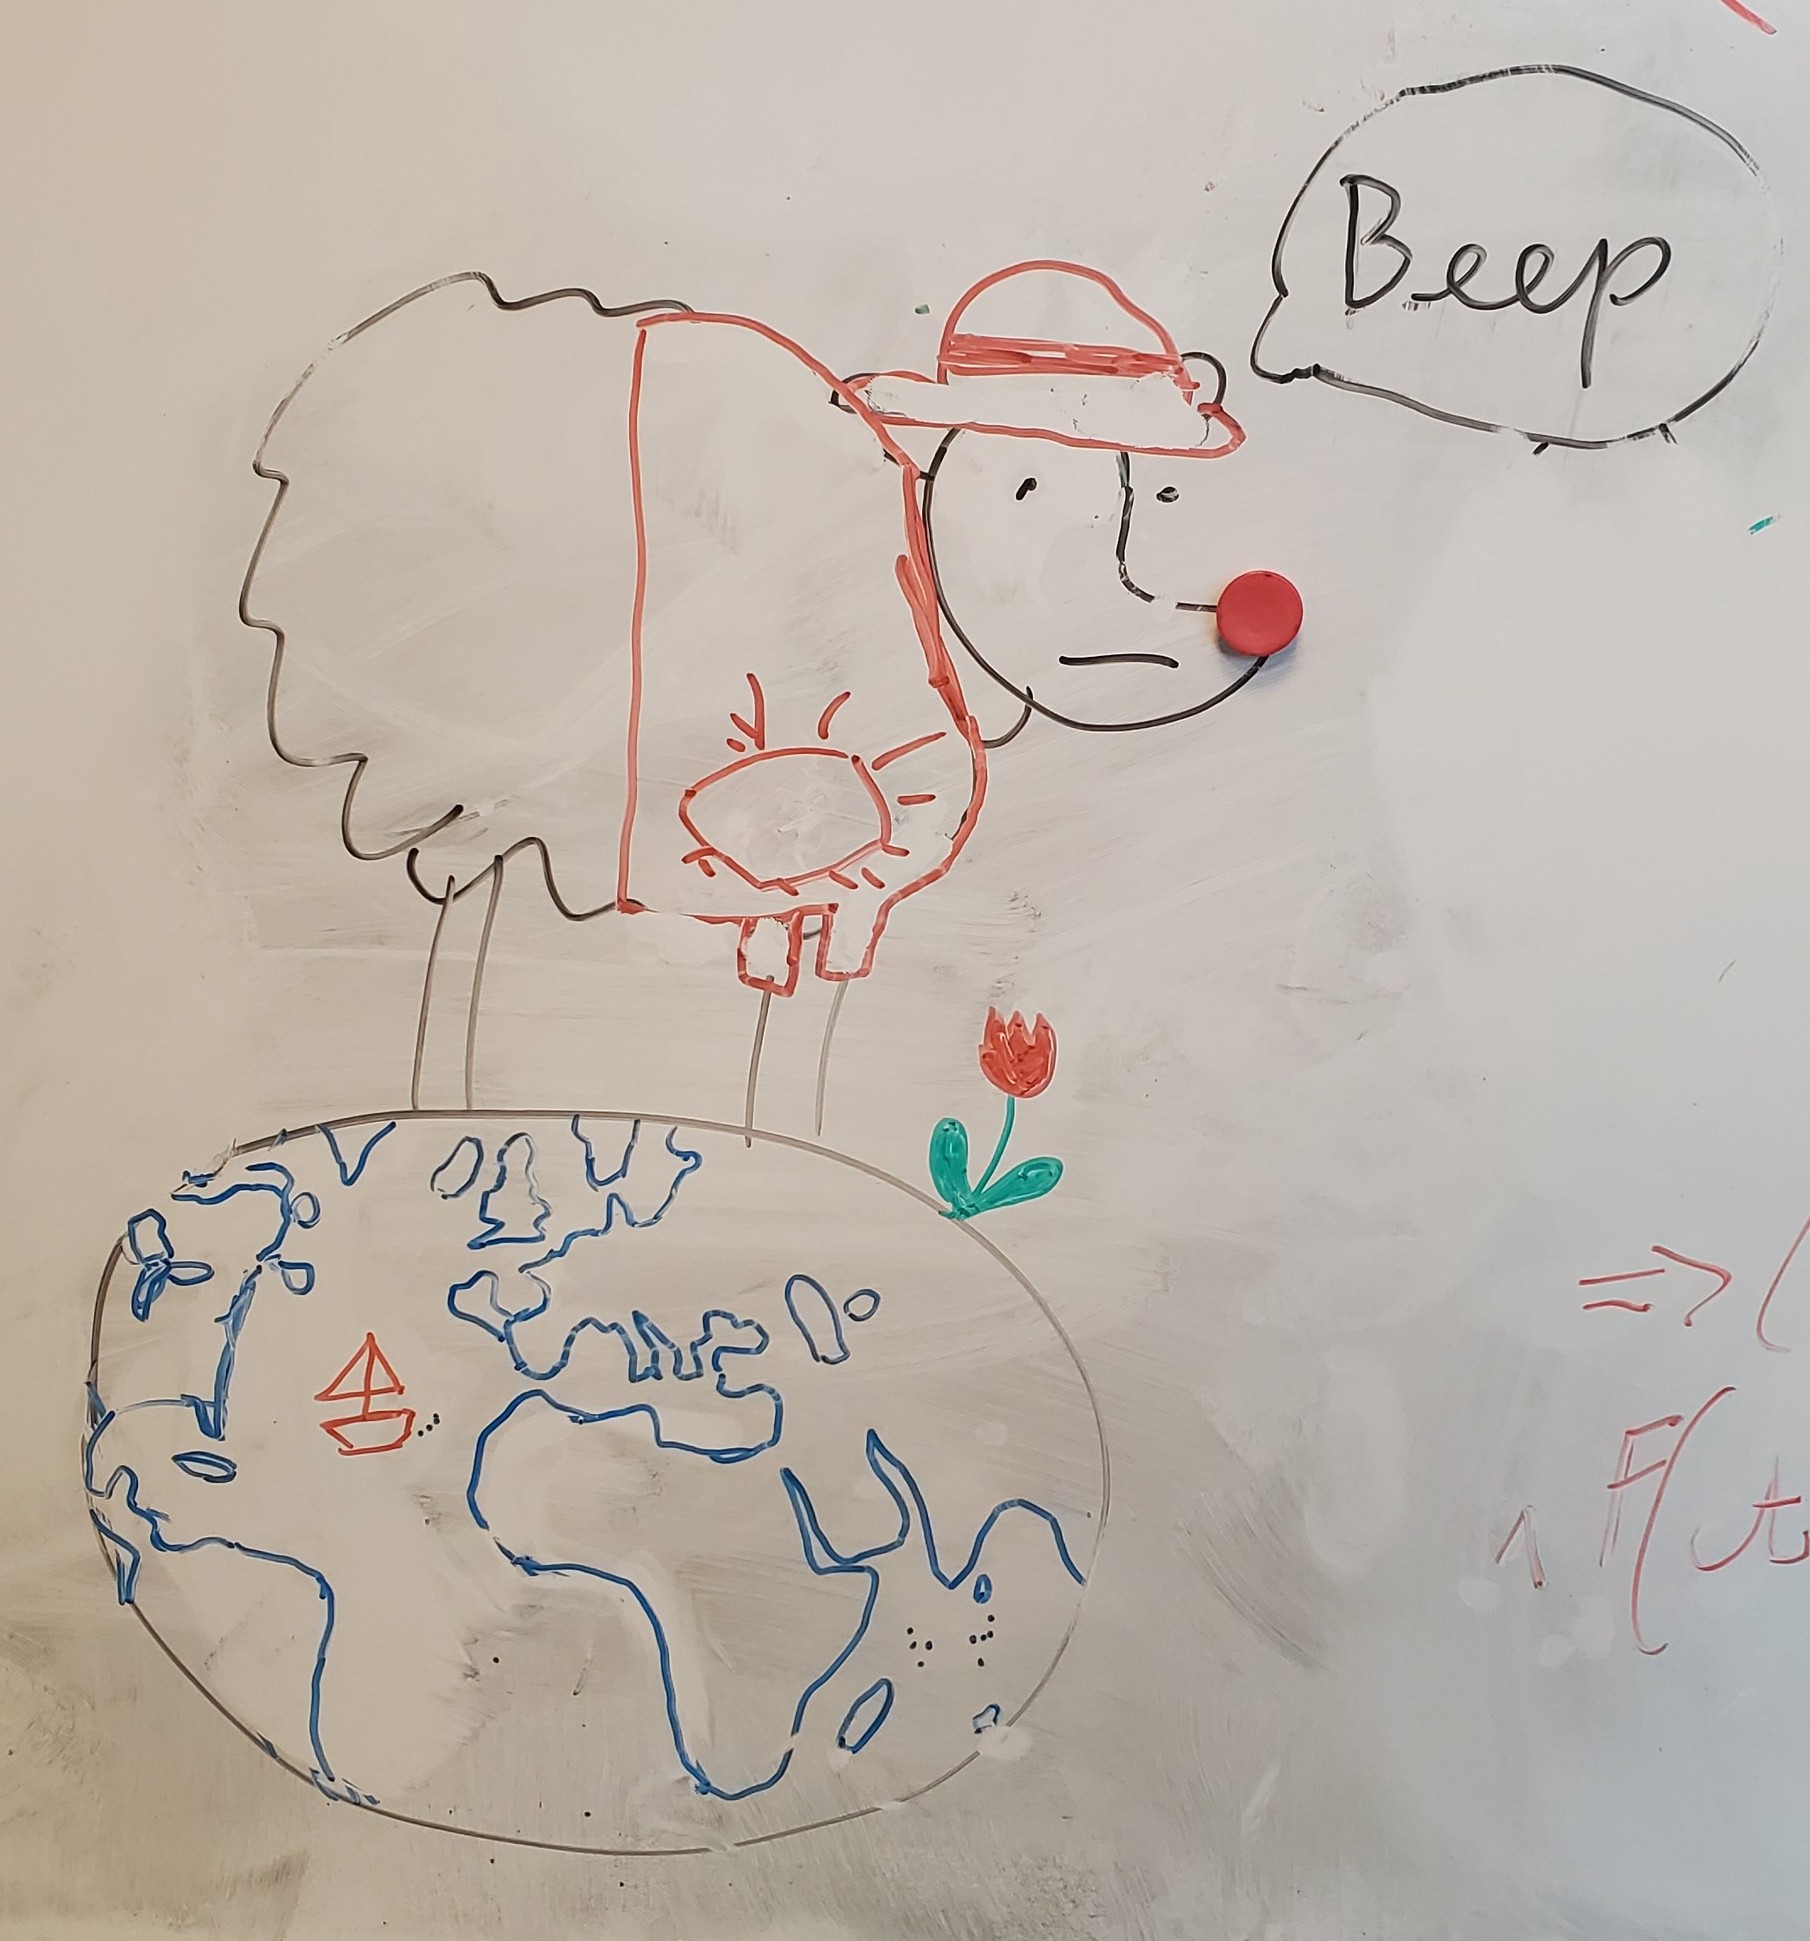 Beep
=> (
1 F(t